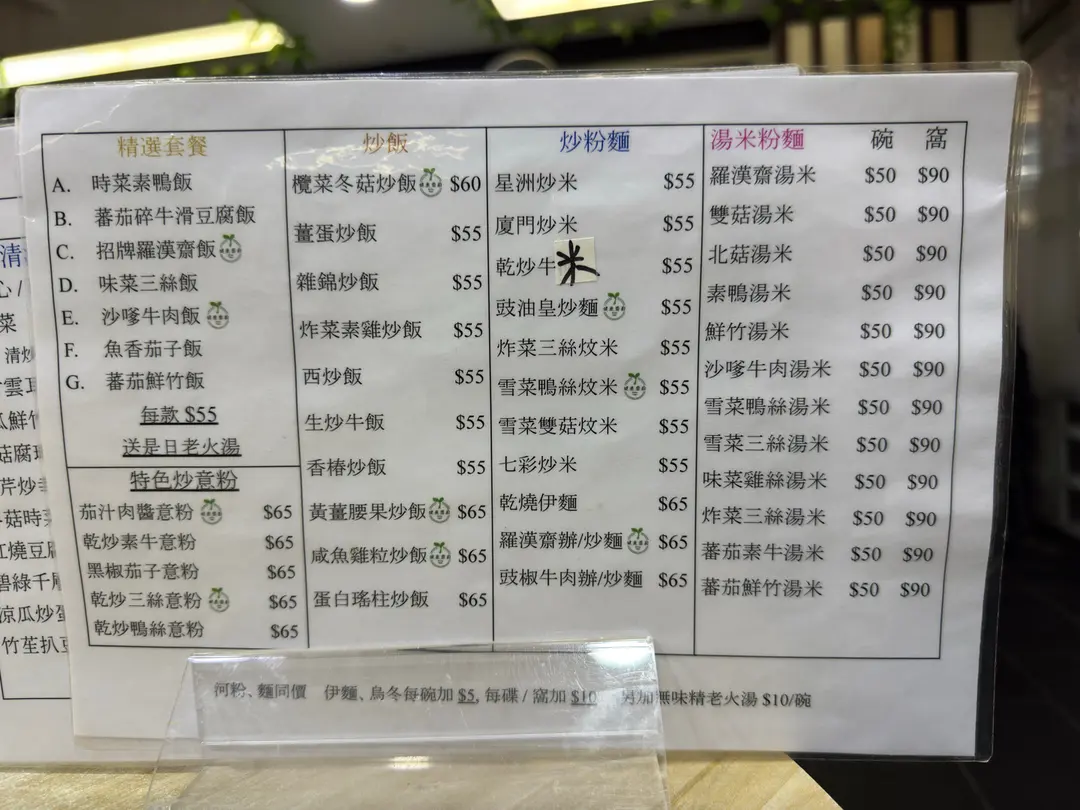 精選套餐
A. 時菜素鴨飯
B. 蕃茄碎牛滑豆腐飯
C. 招牌羅漢齋飯
D. 味菜三絲飯
E. 沙嗲牛肉飯
F. 魚香茄子飯
G. 蕃茄鮮竹飯
每款 $55
送是日老火湯
特色炒意粉
茄汁肉醬意粉 $65
乾炒素牛意粉 $65
黑椒茄子意粉 $65
乾炒三絲意粉 $65
乾炒鴨絲意粉 $65
炒飯
欖菜冬菇炒飯 $60
薑蛋炒飯 $55
雜錦炒飯 $55
炸菜素雞炒飯 $55
西炒飯 $55
生炒牛飯 $55
香椿炒飯 $55
黃薑腰果炒飯 $65
咸魚雞粒炒飯 $65
蛋白瑤柱炒飯 $65
炒粉麵
星洲炒米 $55
廈門炒米 $55
乾炒牛米 $55
豉油皇炒麵 $55
炸菜三絲炆米 $55
雪菜鴨絲炆米 $55
雪菜雙菇炆米 $55
七彩炒米 $55
乾燒伊麵 $65
羅漢齋辦/炒麵 $65
豉椒牛肉辦/炒麵 $65
湯米粉麵 碗 窩
羅漢齋湯米 $50 $90
雙菇湯米 $50 $90
北菇湯米 $50 $90
素鴨湯米 $50 $90
鮮竹湯米 $50 $90
沙嗲牛肉湯米 $50 $90
雪菜鴨絲湯米 $50 $90
雪菜三絲湯米 $50 $90
味菜雞絲湯米 $50 $90
炸菜三絲湯米 $50 $90
蕃茄素牛湯米 $50 $90
蕃茄鮮竹湯米 $50 $90
河粉、麵同價 伊麵、烏冬每碗加 $5, 每碟 / 窩加 $10 另加無味精老火湯 $10/碗